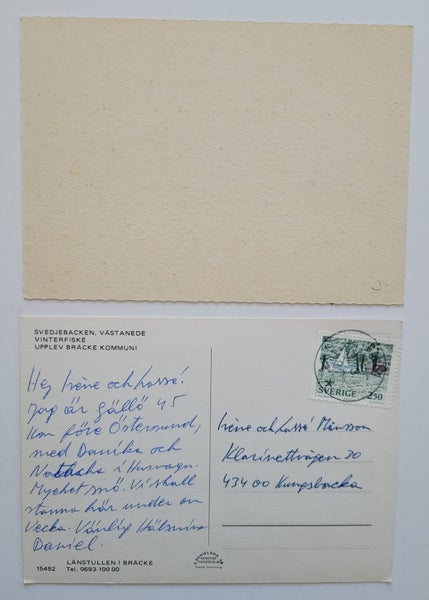 SVEDJEBACKEN, VÄSTANEDE
VINTERFISKE
UPPLEV BRÄCKE KOMMUN!
Hej Irène och Lasse!
Jag är Gällö 45
Km före Östersund,
med Danika och
Natacha i Husvagn.
Mycket snö. Vi skall
stanna här under en
Vecka. Vänlig Hälsning
Daniel.
LÄNSTULLEN I BRÄCKE
15452 Tel. 0693-100 00
SVERIGE 2.50
Irène och Lasse Månsson
Klarinettvägen 30
434 00 Kungsbacka